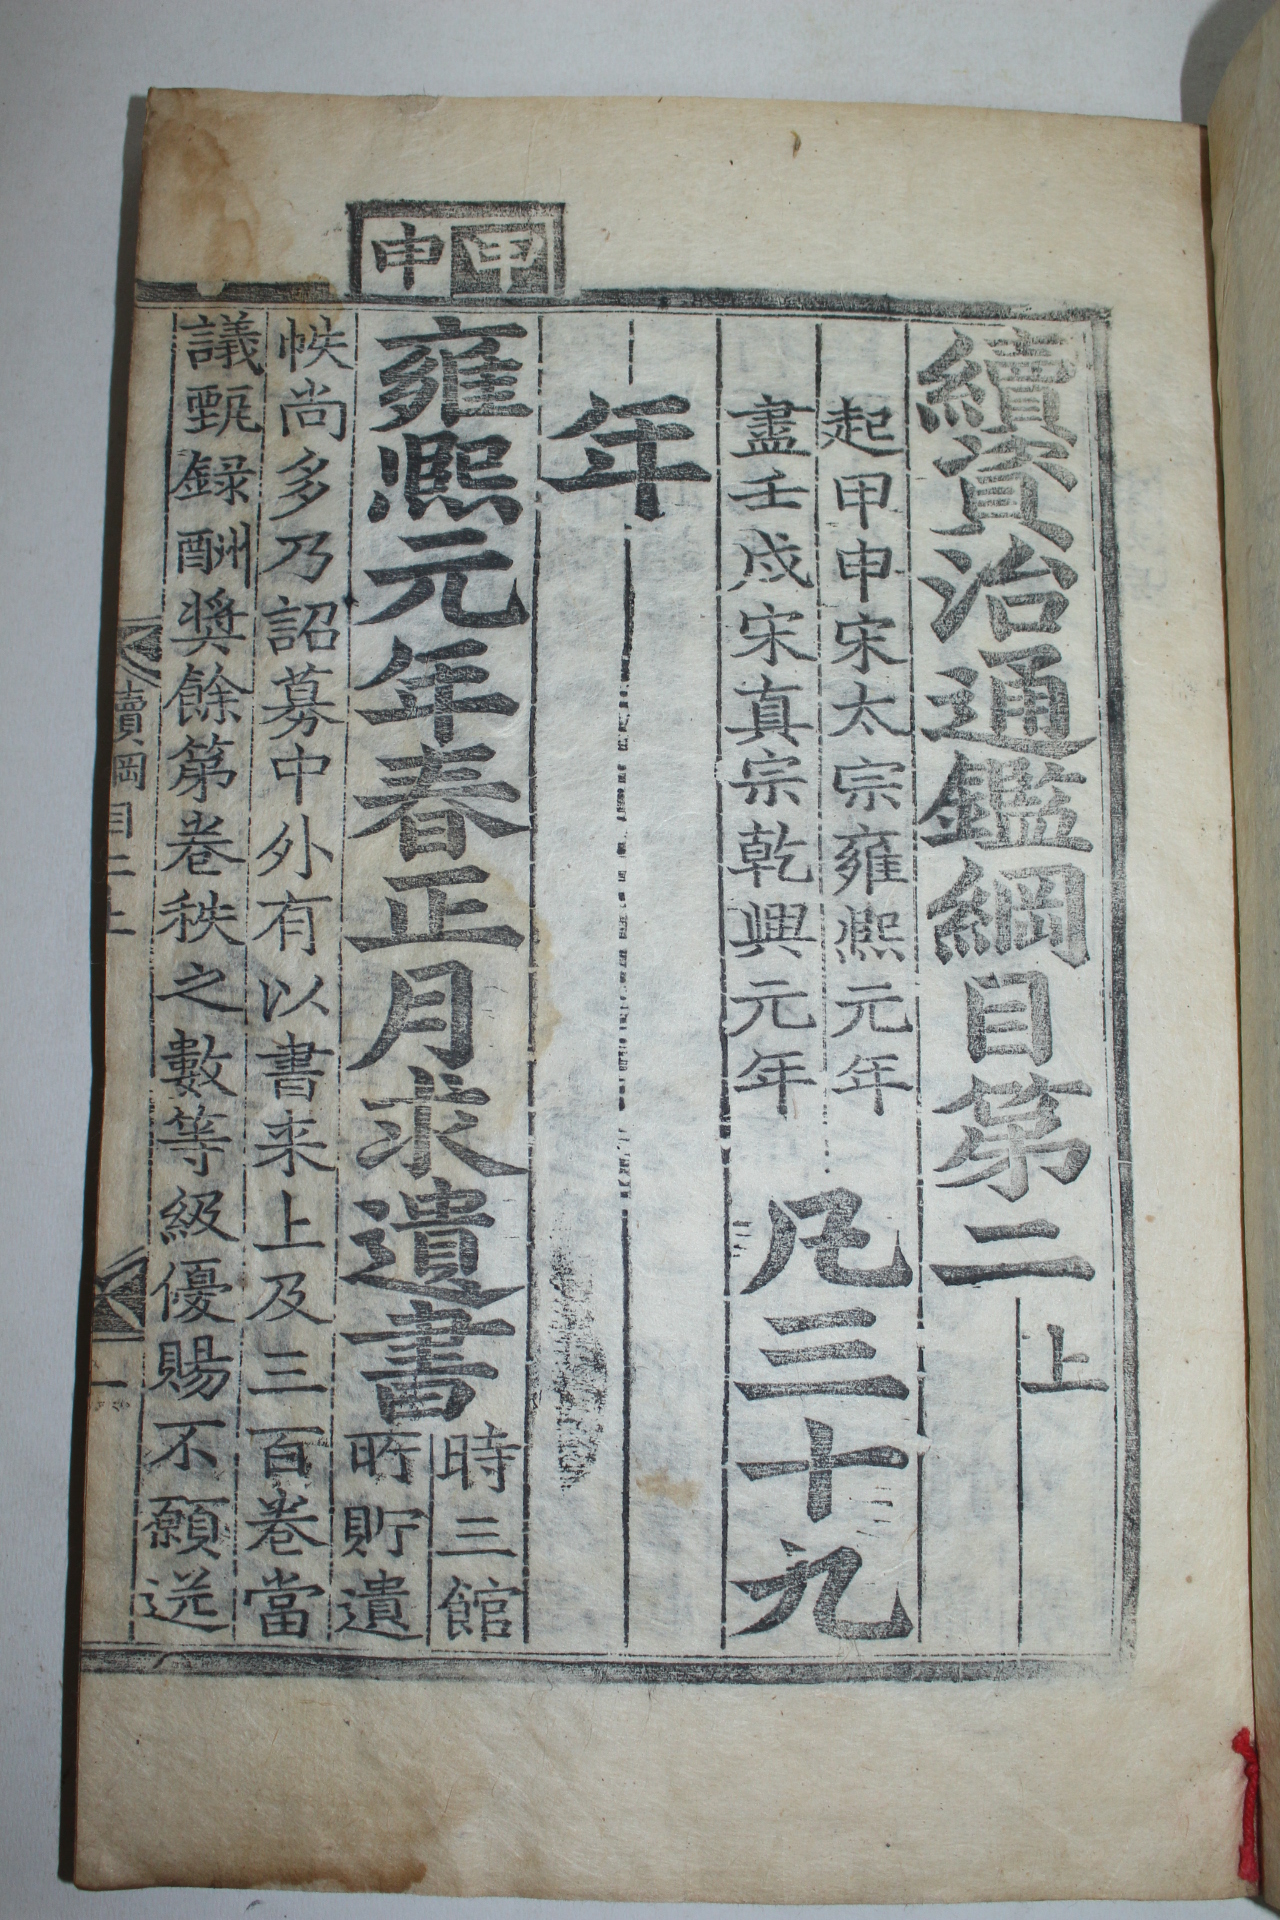 續資治通鑑綱目第二上
起甲申宋太宗雍熙元年
盡壬戌宋真宗乾興元年
凡三十九
年
甲申
雍熙元年春正月求遺書
時三館
所貯遺
帙尚多乃詔募中外有以書来上及三百卷當
議甄録酬奬餘第卷秩之數等級優賜不願送
續綱目二上
一